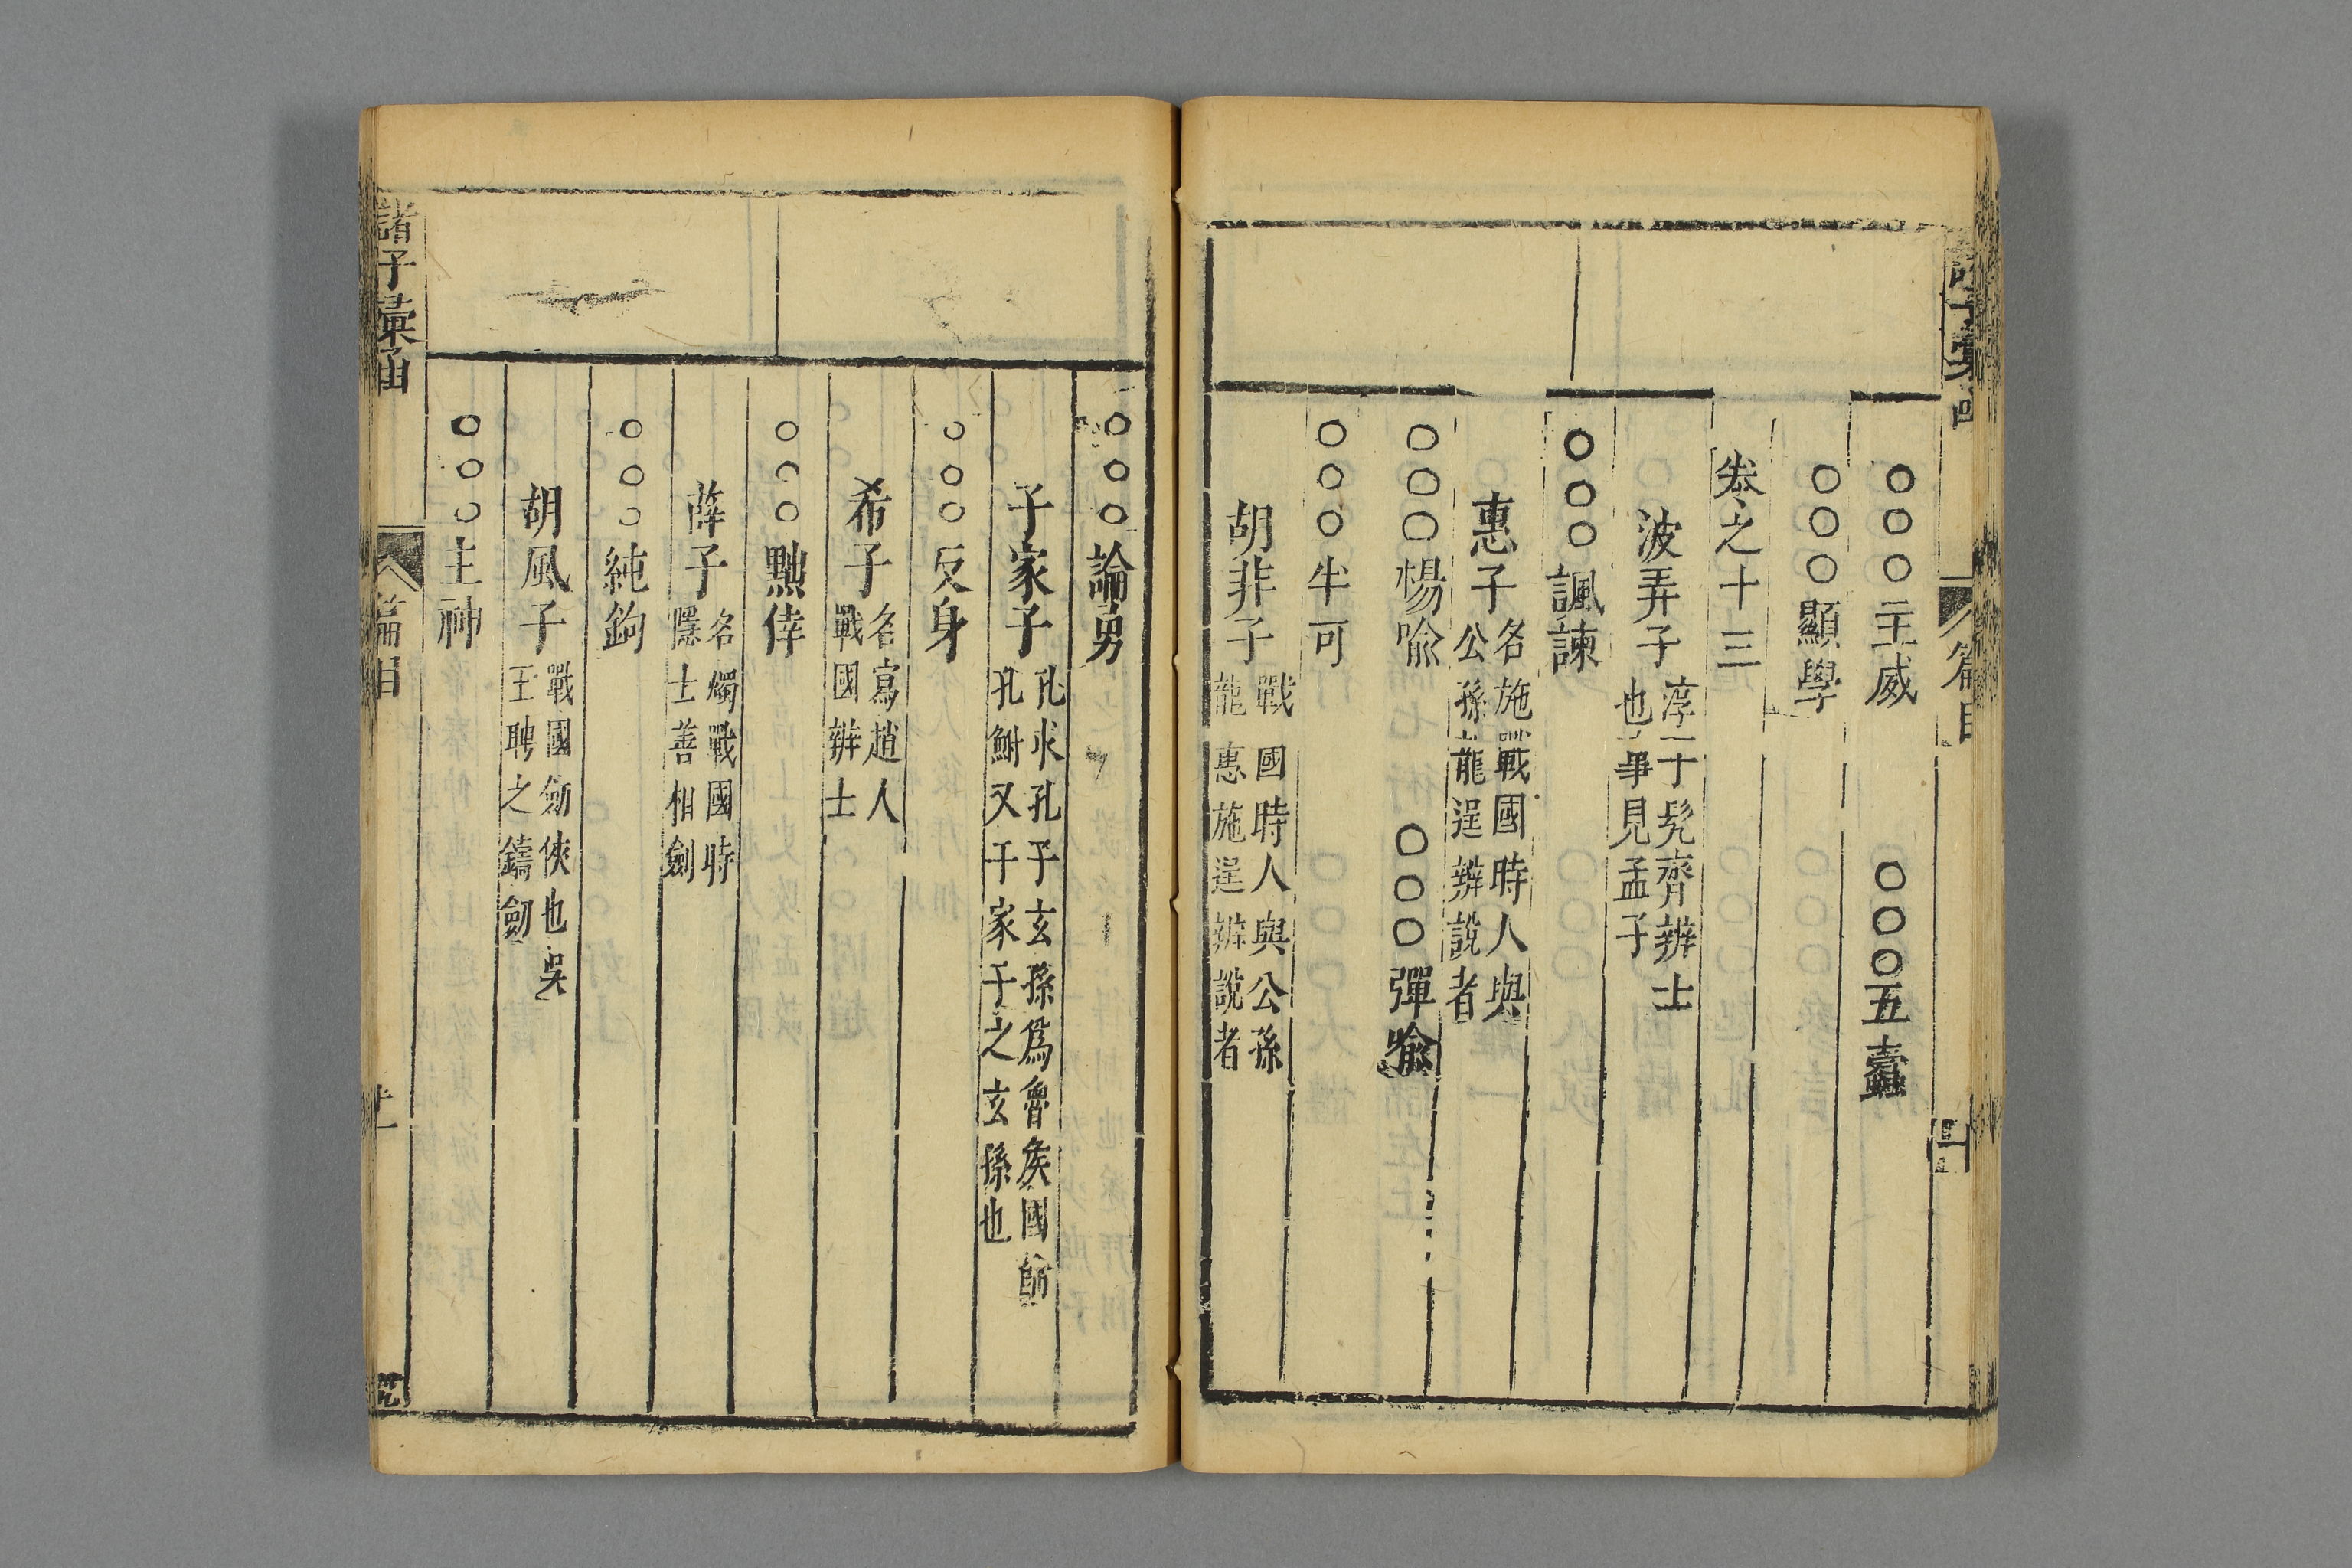 ○○○主威　○○○五蠹
○○○顯學
卷之十三
波弄子 淳于髡齊辨士也事見孟子
○○○諷諫
惠子 名施戰國時人與公孫龍逞辨說者
○○○楊喻　○○○彈喻
○○○牛可
胡非子 戰國時人與公孫龍惠施逞辨說者
○○○論勇
子家子 孔求孔子玄孫爲魯矦國師孔鮒又子家子之玄孫也
○○○反身
希子 名寫趙人戰國辨士
○○○黜倖
薛子 名燭戰國時隱士善相劍
○○○純鉤
胡風子 戰國劒俠也吳王聘之鑄劒
○○○主神
諸子彙函
篇目